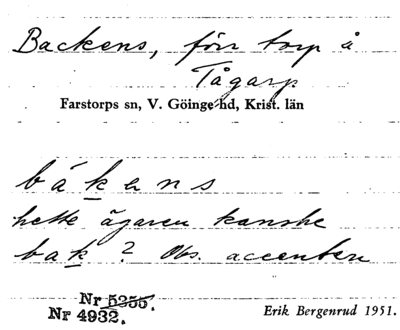 Backens, förr torp å
Tågarp
Farstorps sn, V. Göinge hd, Krist. län
bákens
hette ägaren kanske
bak? Obs. accenten
Nr 5255.
Nr 4932.
Erik Bergenrud 1951.